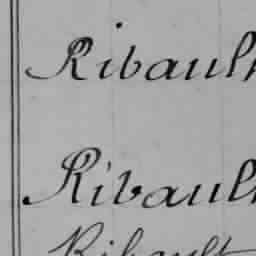 Ribault
Ribault
Ribault